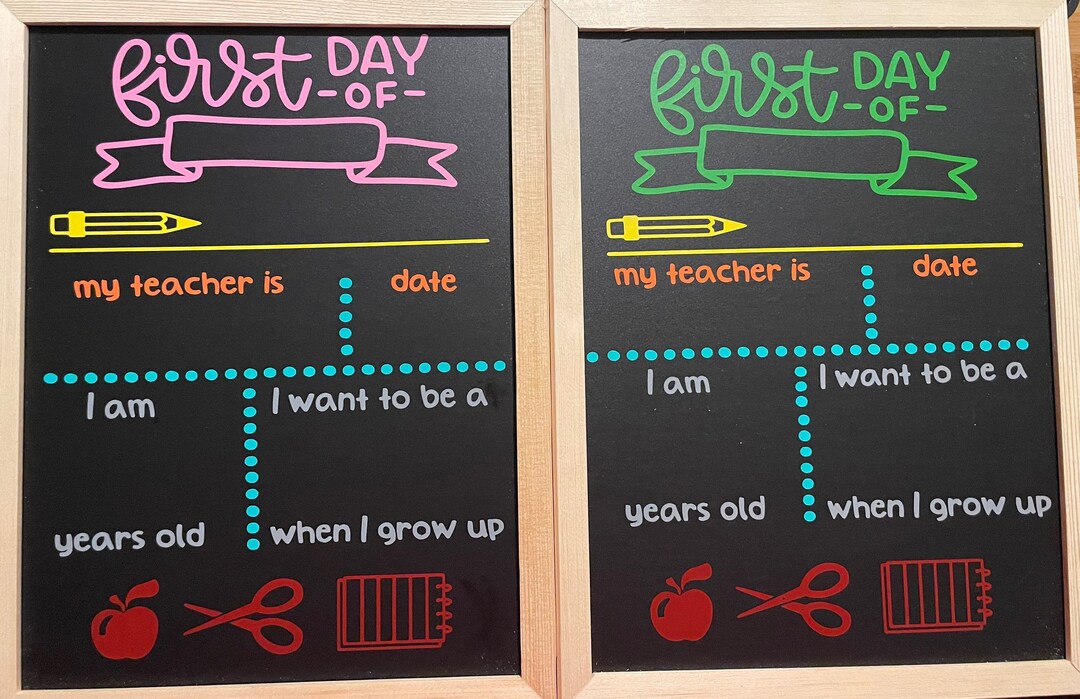 first DAY
-OF-
my teacher is date
I am I want to be a
years old when I grow up
first DAY
-OF-
my teacher is date
I am I want to be a
years old when I grow up